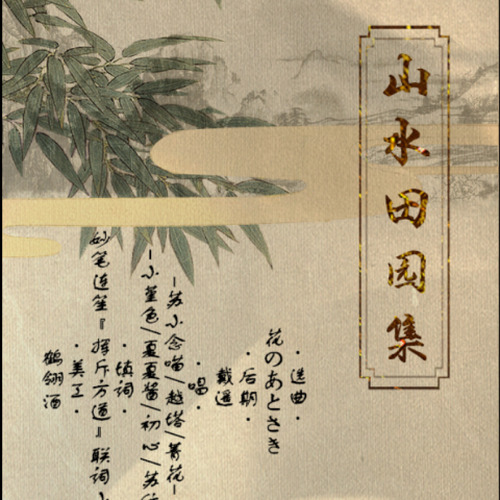 山水田园集
·选曲·
花のあとさき
·后期·
戴遥
·唱·
—苏小念喵/越塔/菁花—
—小堇色/夏夏酱/初心/苏
·填词·
妙笔连笙『挥斥方遒』联词
·美工·
鹤翎酒